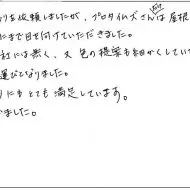 りを依頼しましたが、プロタイムズさんは屋根
にまで目を付けていただきました。
社には無く、又色の提案も細かくしてい
運びとなりました。
りにもとても満足しています。
いました。